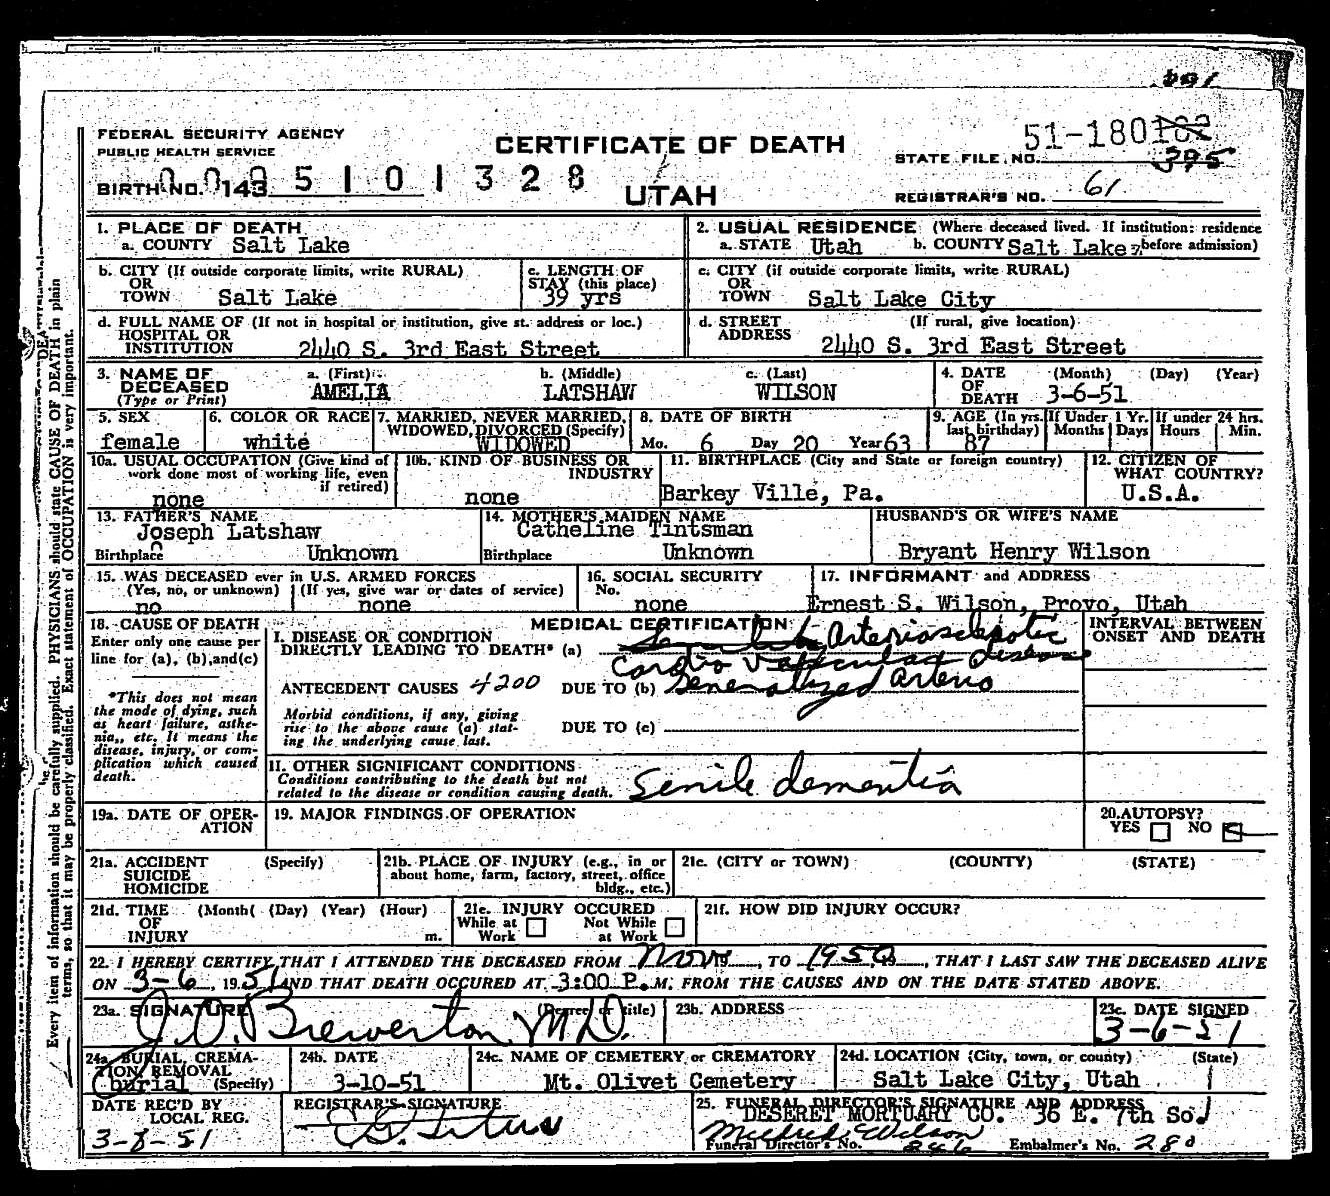 FEDERAL SECURITY AGENCY
PUBLIC HEALTH SERVICE
CERTIFICATE OF DEATH
UTAH
STATE FILE NO. 51-180
395
BIRTH NO. 143
0095101328
REGISTRAR'S NO. 61
1. PLACE OF DEATH
a. COUNTY Salt Lake
2. USUAL RESIDENCE (Where deceased lived. If institution: residence before admission)
a. STATE Utah b. COUNTY Salt Lake
b. CITY (If outside corporate limits, write RURAL)
OR
TOWN Salt Lake
c. LENGTH OF
STAY (this place)
39 yrs
c. CITY (if outside corporate limits, write RURAL)
OR
TOWN Salt Lake City
d. FULL NAME OF (If not in hospital or institution, give st. address or loc.)
HOSPITAL OR
INSTITUTION 2440 S. 3rd East Street
d. STREET (If rural, give location)
ADDRESS 2440 S. 3rd East Street
3. NAME OF
DECEASED
(Type or Print)
a. (First) b. (Middle) c. (Last)
AMELIA LATSHAW WILSON
4. DATE (Month) (Day) (Year)
OF
DEATH 3-6-51
5. SEX
female
6. COLOR OR RACE
white
7. MARRIED, NEVER MARRIED,
WIDOWED, DIVORCED (Specify)
WIDOWED
8. DATE OF BIRTH
Mo. 6 Day 20 Year 63
9. AGE (In yrs.
last birthday)
87
If Under 1 Yr.
Months Days
If under 24 hrs.
Hours Min.
10a. USUAL OCCUPATION (Give kind of
work done most of working life, even
if retired)
none
10b. KIND OF BUSINESS OR
INDUSTRY
none
11. BIRTHPLACE (City and State or foreign country)
Barkey Ville, Pa.
12. CITIZEN OF
WHAT COUNTRY?
U.S.A.
13. FATHER'S NAME
Joseph Latshaw
Birthplace Unknown
14. MOTHER'S MAIDEN NAME
Catheline Tintsman
Birthplace Unknown
HUSBAND'S OR WIFE'S NAME
Bryant Henry Wilson
15. WAS DECEASED ever in U.S. ARMED FORCES
(Yes, no, or unknown) (If yes, give war or dates of service)
no none
16. SOCIAL SECURITY
No.
none
17. INFORMANT and ADDRESS
Ernest S. Wilson, Provo, Utah
18. CAUSE OF DEATH
Enter only one cause per
line for (a), (b), and (c)
*This does not mean
the mode of dying, such
as heart failure, asthe-
nia,, etc. It means the
disease, injury, or com-
plication which caused
death.
MEDICAL CERTIFICATION
I. DISEASE OR CONDITION
DIRECTLY LEADING TO DEATH* (a) Arteriosclerotic
Cardio Vascular disease
ANTECEDENT CAUSES 4200 DUE TO (b) Generalized Arterio
Morbid conditions, if any, giving
rise to the above cause (a) stat-
ing the underlying cause last.
DUE TO (c)
II. OTHER SIGNIFICANT CONDITIONS
Conditions contributing to the death but not
related to the disease or condition causing death.
Senile dementia
INTERVAL BETWEEN
ONSET AND DEATH
19a. DATE OF OPER-
ATION
19. MAJOR FINDINGS OF OPERATION
20. AUTOPSY?
YES NO
21a. ACCIDENT (Specify)
SUICIDE
HOMICIDE
21b. PLACE OF INJURY (e.g., in or
about home, farm, factory, street, office
bldg., etc.)
21c. (CITY or TOWN) (COUNTY) (STATE)
21d. TIME (Month( (Day) (Year) (Hour)
OF
INJURY m.
21e. INJURY OCCURED
While at Work
Not While at Work
21f. HOW DID INJURY OCCUR?
22. I HEREBY CERTIFY THAT I ATTENDED THE DECEASED FROM Nov, TO 1950, THAT I LAST SAW THE DECEASED ALIVE
ON 3-6, 1951 AND THAT DEATH OCCURED AT 3:00 P.M. FROM THE CAUSES AND ON THE DATE STATED ABOVE.
23a. SIGNATURE (Degree or title)
J.O. Brewerton M.D.
23b. ADDRESS
23c. DATE SIGNED
3-6-51
24a. BURIAL, CREMA-
TION, REMOVAL
burial (Specify)
24b. DATE
3-10-51
24c. NAME OF CEMETERY or CREMATORY
Mt. Olivet Cemetery
24d. LOCATION (City, town, or county) (State)
Salt Lake City, Utah
DATE REC'D BY
LOCAL REG.
3-8-51
REGISTRAR'S SIGNATURE
25. FUNERAL DIRECTOR'S SIGNATURE AND ADDRESS
DESERET MORTUARY CO. 36 E. 7th So.
Mildred Wilson
Funeral Director's No. 246 Embalmer's No. 280
Every item of information should be carefully supplied. PHYSICIANS should state CAUSE OF DEATH in plain
terms, so that it may be properly classified. Exact statement of OCCUPATION is very important.